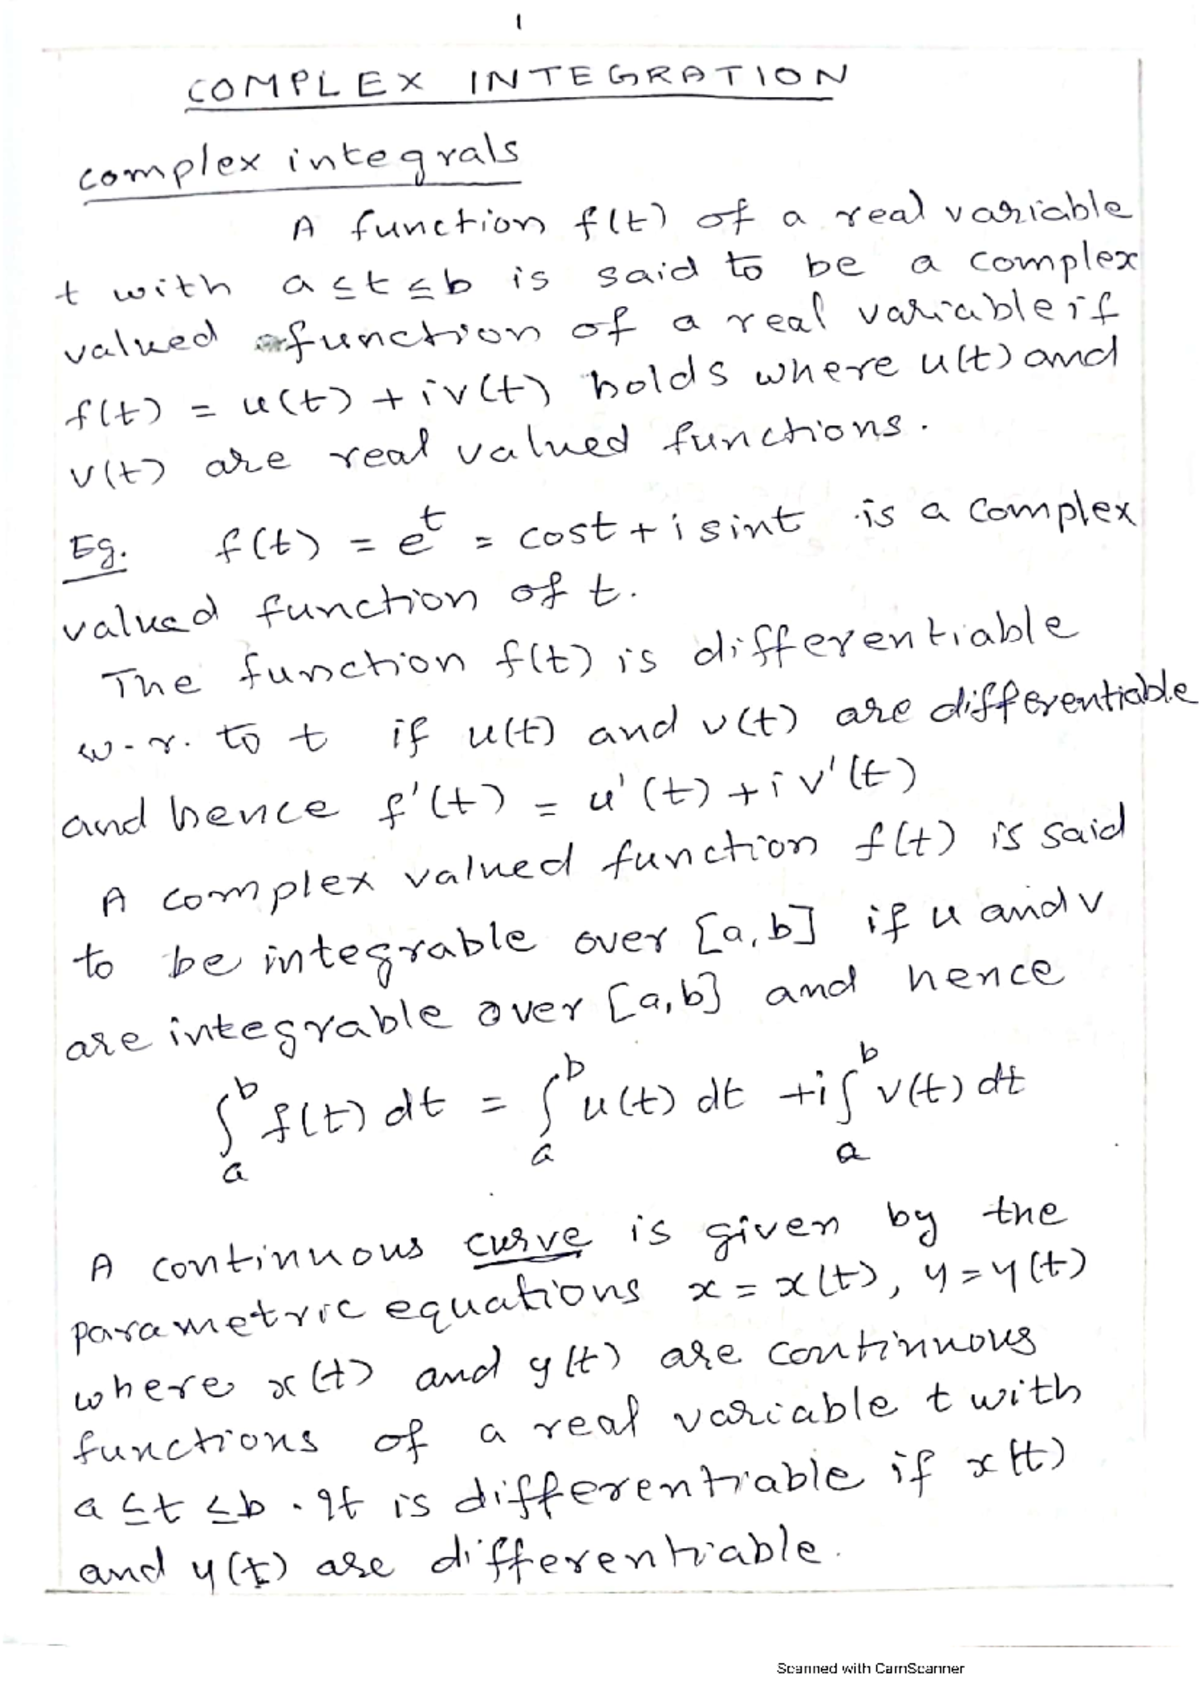 1
COMPLEX INTEGRATION
complex integrals
A function f(t) of a real variable
t with a ≤ t ≤ b is said to be a complex
valued function of a real variable if
f(t) = u(t) + iv(t) holds where u(t) and
v(t) are real valued functions.
Eg. f(t) = e^t = cost + i sint is a complex
valued function of t.
The function f(t) is differentiable
w.r. to t if u(t) and v(t) are differentiable
and hence f'(t) = u'(t) + i v'(t)
A complex valued function f(t) is said
to be integrable over [a, b] if u and v
are integrable over [a, b] and hence
∫_a^b f(t) dt = ∫_a^b u(t) dt + i ∫_a^b v(t) dt
A continuous curve is given by the
parametric equations x = x(t), y = y(t)
where x(t) and y(t) are continuous
functions of a real variable t with
a ≤ t ≤ b. It is differentiable if x(t)
and y(t) are differentiable.
Scanned with CamScanner